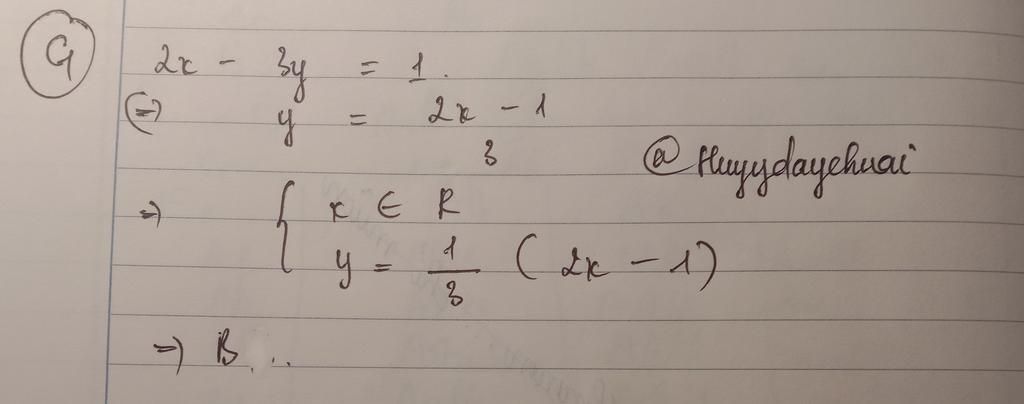 G
2x - 3y = 1.
(=) y = 2x - 1
3
@Huyydayehuai
=) { x ∈ R
y = 1/3 (2x - 1)
=) B ..